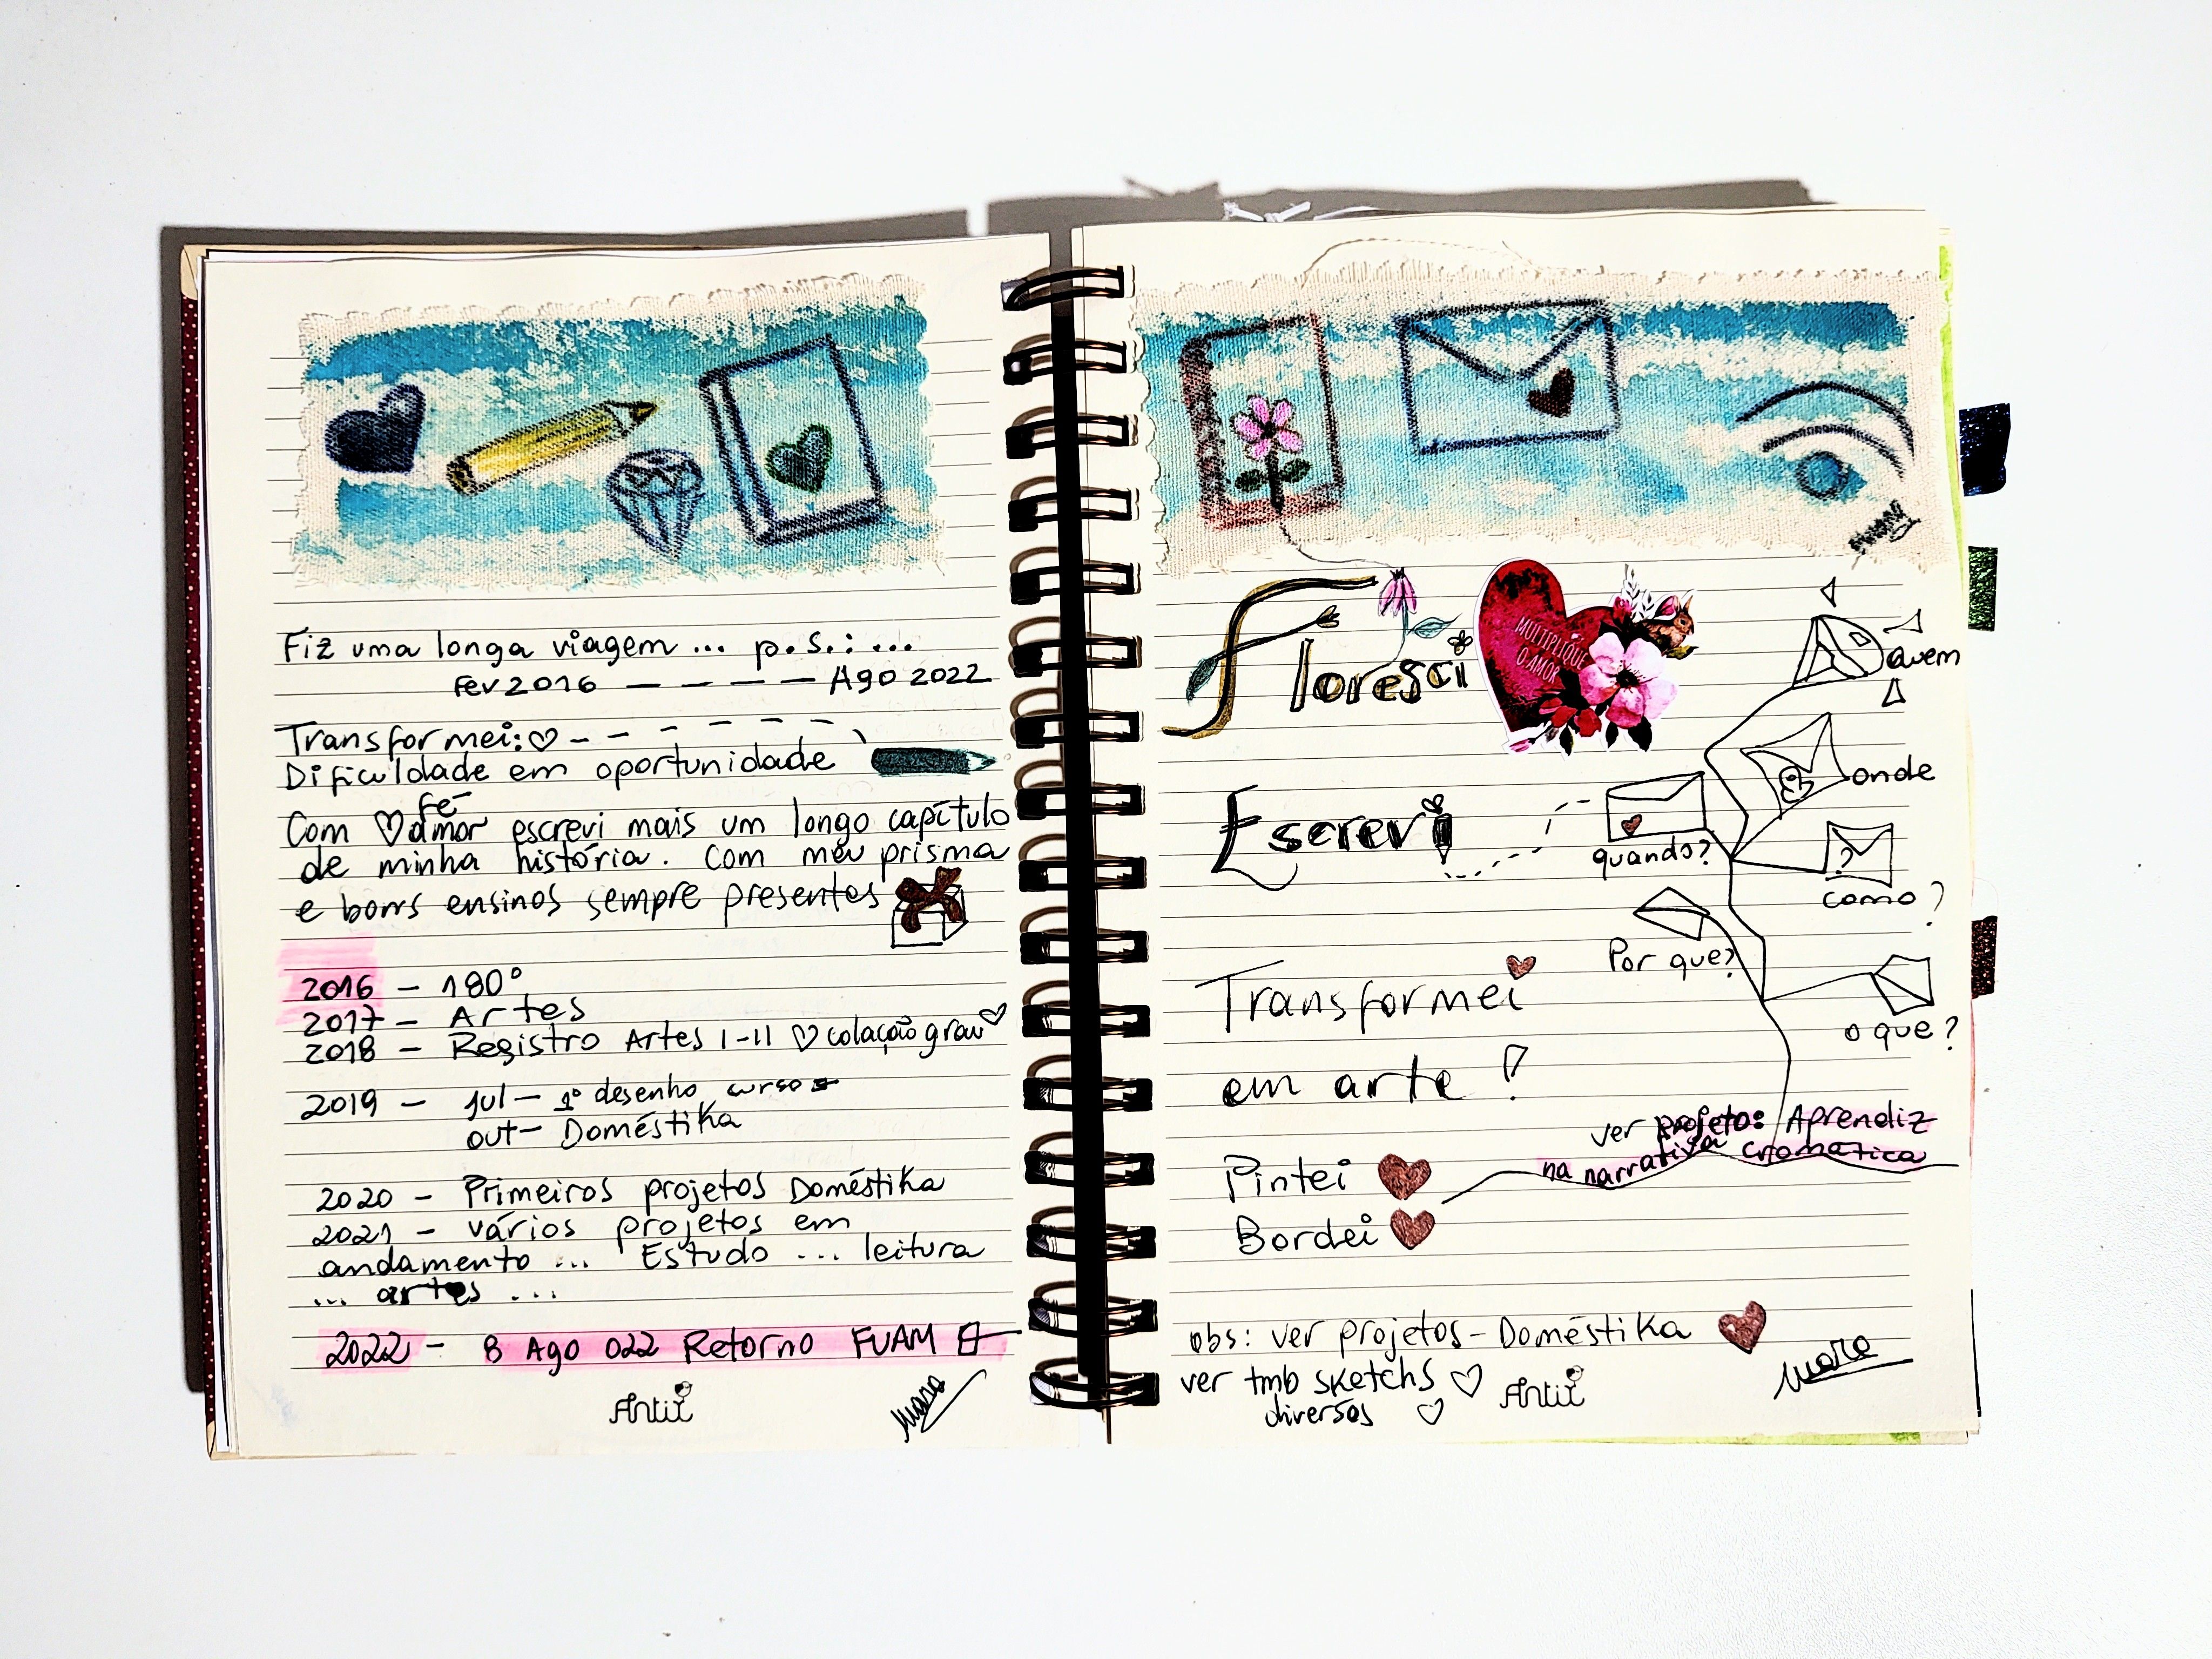 Fiz uma longa viagem ... p.s.: ...
Fev 2016 — — — — Ago 2022
Transformei: ♡ - - - - - -
Dificuldade em oportunidade
fé
Com ♡ amor escrevi mais um longo capítulo
de minha história. Com meu prisma
e bons ensinos sempre presentes
2016 - 180°
2017 - Artes
2018 - Registro Artes I-II ♡ colação grau ♡
2019 - Jul - 1º desenho curso
out - Doméstika
2020 - Primeiros projetos Doméstika
2021 - vários projetos em
andamento ... Estudo ... leitura
... artes ...
2022 - 8 Ago 022 Retorno FUAM
Antix
Mara
Floresci
MULTIPLIQUE
O AMOR
quem
onde
Escrevi
quando?
como?
Por que?
o que?
Transformei
em arte!
ver projeto: Aprendiz
na narrativa cromática
Pintei
Bordei
obs: ver projetos - Doméstika
ver tmb sketchs ♡
diversos ♡
Antix
Mara